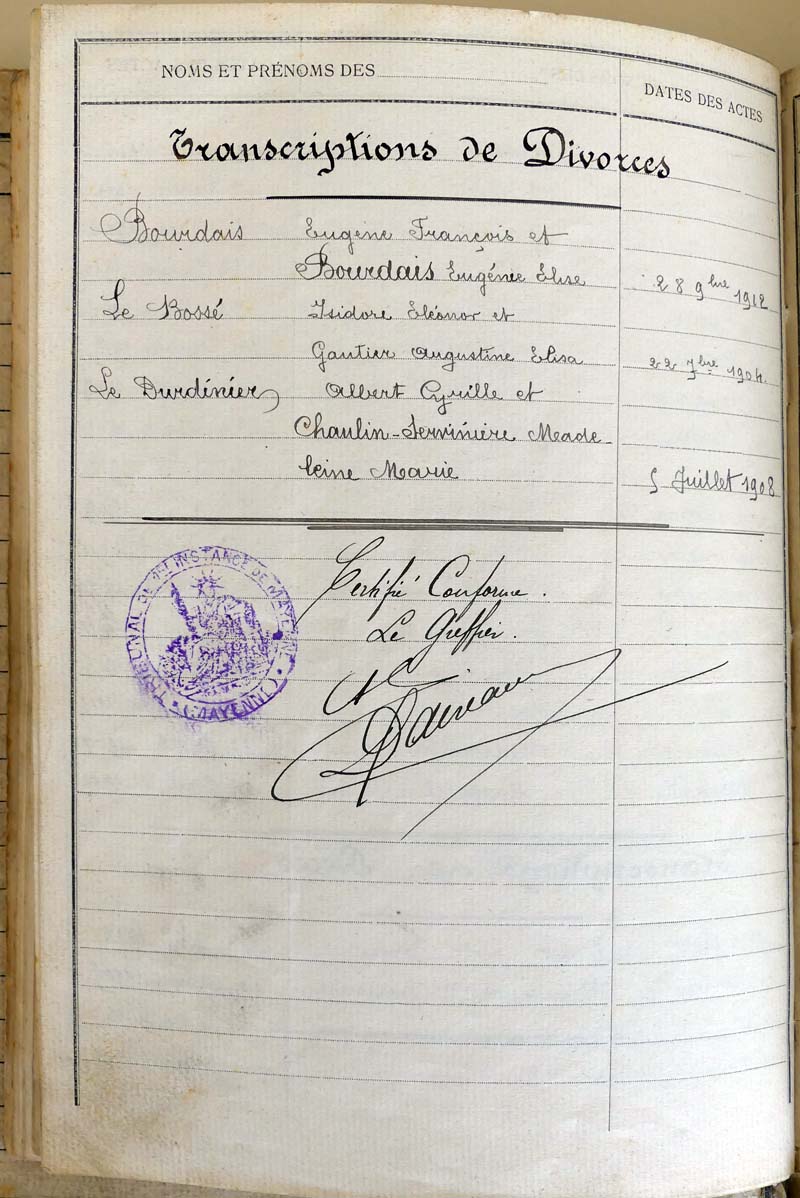 NOMS ET PRÉNOMS DES
DATES DES ACTES
Transcriptions de Divorces
Bourdais Eugène François et
Bourdais Eugénie Elise 28 9bre 1912
Le Bossé Isidore Eléonor et
Gautier Augustine Elisa 22 7bre 1904.
Le Durdinier Albert Cyrille et
Chaulin-Servinière Meade-
leine Marie 5 Juillet 1908
TRIBUNAL DE 1ERE INSTANCE DE MAYENNE
(MAYENNE)
Certifié Conforme.
Le Greffier.